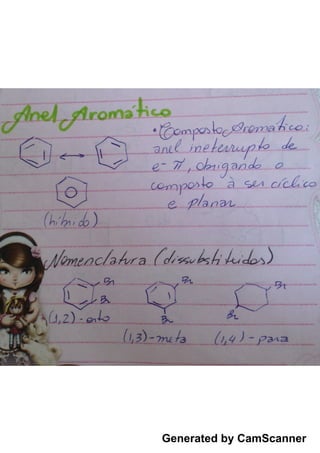 Anel Aromático
• Composto Aromático:
anel ineterrupto de
e- π, obrigando o
composto à ser cíclico
e planar
(híbrido)
Nomenclatura (dissubstituídos)
Br
Br
Br
Br
Br
Br
(1,2) - orto
(1,3) - meta
(1,4) - para
Generated by CamScanner